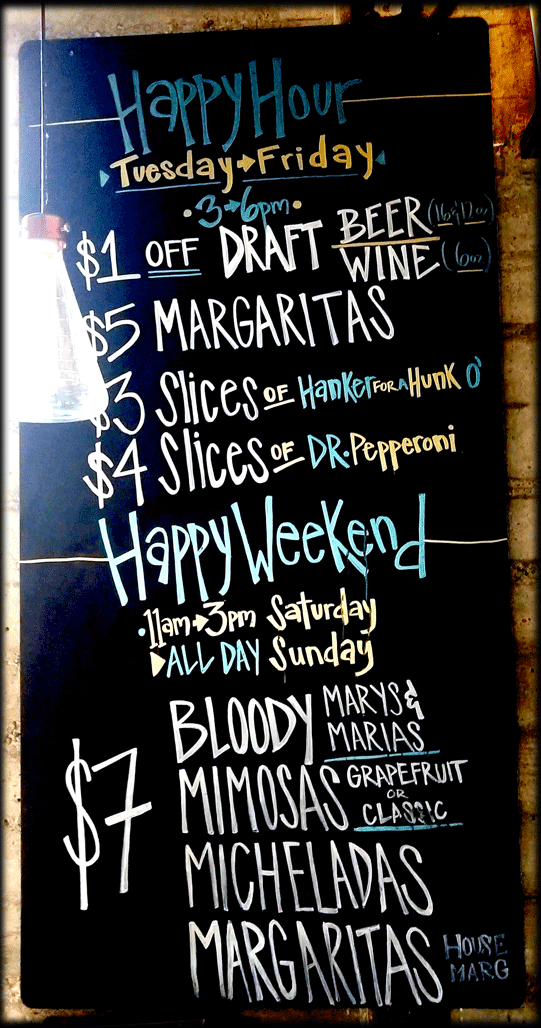 Happy Hour
Tuesday → Friday
• 3 → 6pm •
$1 OFF DRAFT BEER (16 & 12oz)
WINE (6oz)
$5 MARGARITAS
$3 Slices OF Hanker FOR A Hunk O'
$4 Slices OF DR. Pepperoni
Happy Weekend
• 11am → 3pm Saturday
ALL DAY Sunday
$7
BLOODY MARYS &
MARIAS
MIMOSAS GRAPEFRUIT
OR
CLASSIC
MICHELADAS
MARGARITAS HOUSE
MARG